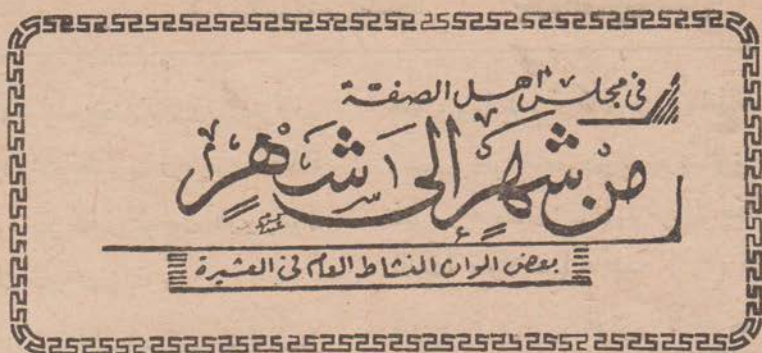 في مجلس أهل الصفة
من شهرٍ إلى شهرٍ
بعض ألوان النشاط العام في العشيرة